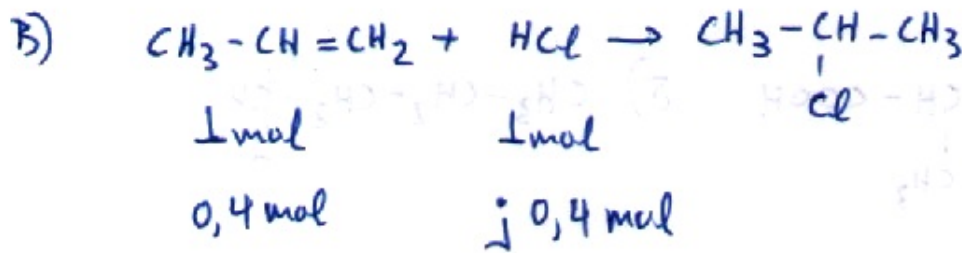 B) CH₃-CH=CH₂ + HCl → CH₃-CH-CH₃
Cl
1mol 1mol
0,4 mol j 0,4 mol